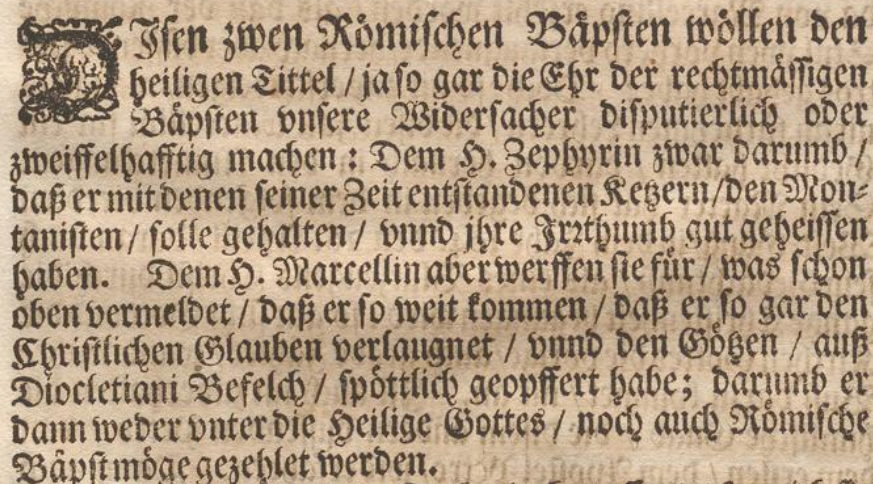 DIsen zwen Römischen Bäpsten wöllen den
heiligen Tittel / ja so gar die Ehr der rechtmässigen
Bäpsten vnsere Widersacher disputierlich oder
zweiffelhafftig machen : Dem H. Zephyrin zwar darumb /
daß er mit denen seiner Zeit entstandenen Ketzern / den Mon-
tanisten / solle gehalten / vnnd jhre Irrthumb gut geheissen
haben. Dem H. Marcellin aber werffen sie für / was schon
oben vermeldet / daß er so weit kommen / daß er so gar den
Christlichen Glauben verlaugnet / vnnd den Götzen / auß
Diocletiani Befelch / spöttlich geopffert habe; darumb er
dann weder vnter die Heilige Gottes / noch auch Römische
Bäpst möge gezehlet werden.